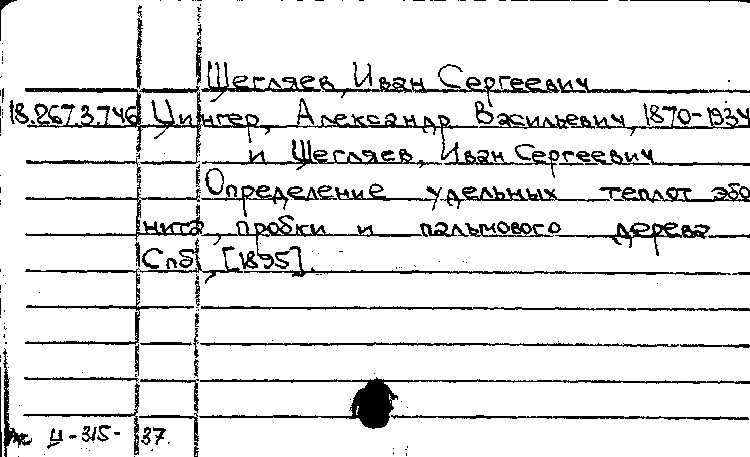 Щегляев, Иван Сергеевич
18.267.3.746 Цингер, Александр Васильевич, 1870-1934
и Щегляев, Иван Сергеевич
Определение удельных теплот эбо
нита, пробки и пальмового дерева
Спб, [1895].
Ц-315-37.